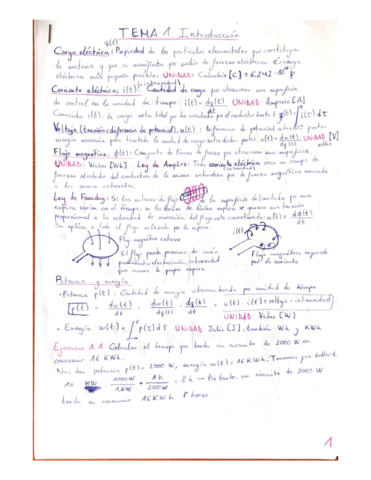 TEMA 1. Introducción
q(t)
Carga eléctrica: Propiedad de las partículas elementales que constituyen
la materia y que se manifiesta por medio de fuerzas eléctricas. Es carga
eléctrica más pequeña posible. UNIDAD: Culombio [C] ± 6.242 · 10
Corriente eléctrica: i(t): Cantidad de carga que atraviesa una superficie
de control en la unidad de tiempo: i(t) = dq(t)/dt UNIDAD: Amperio [A]
Conocida i(t), la carga total que ha circulado por el conductor hasta t: q(t) = ∫ i(t) dt
Voltaje (tensión o diferencia de potencial), u(t): Diferencia de potencial entre puntos
energía necesaria para trasladar la unidad de carga entre dichos puntos. u(t) = dw(t)/dq(t) UNIDAD [V]
Flujo magnético: φ(t): Conjunto de líneas de fuerza que atraviesan una superficie.
UNIDAD: Weber [Wb] Ley de Ampère: Toda corriente eléctrica crea un campo de
fuerzas alrededor del conductor de la misma naturaleza que la fuerza magnética asociada
a los imanes naturales.
Ley de Faraday: Si los enlaces de flujo de la superficie delimitada por una
espira varían con el tiempo, en los bornes de dicha espira se genera una tensión
proporcional a la velocidad de variación del flujo neto concatenado: u(t) = dφ(t)/dt
Se aplica a todo el flujo enlazado por la espira.
Flujo magnético externo
i(t)
El flujo puede provenir de: imán
permanente, electroimán, intensidad
que recorre la propia espira.
Flujo magnético creado
por la corriente
Potencia y energía
- Potencia p(t): Cantidad de energía intercambiada por unidad de tiempo
p(t) = dw(t)/dt = dw(t)/dq(t) · dq(t)/dt = u(t) · i(t) = voltaje · intensidad
UNIDAD: Vatio [W]
- Energía w(t) = ∫ p(t) dt UNIDAD: Julio [J], también Wh y KWh
Ejercicio 1.1 Calcular el tiempo que tarda un circuito de 2000 W en
consumir 16 KWh.
Nos dan potencia p(t) = 2000 W, energía w(t) = 16 KWh. Tenemos que hallar t.
16 KW · 1000 W / 1 KW · 1 h / 2000 W = 8 h → Por tanto, un circuito de 2000 W
tarda en consumir 16 KWh 8 horas.
1